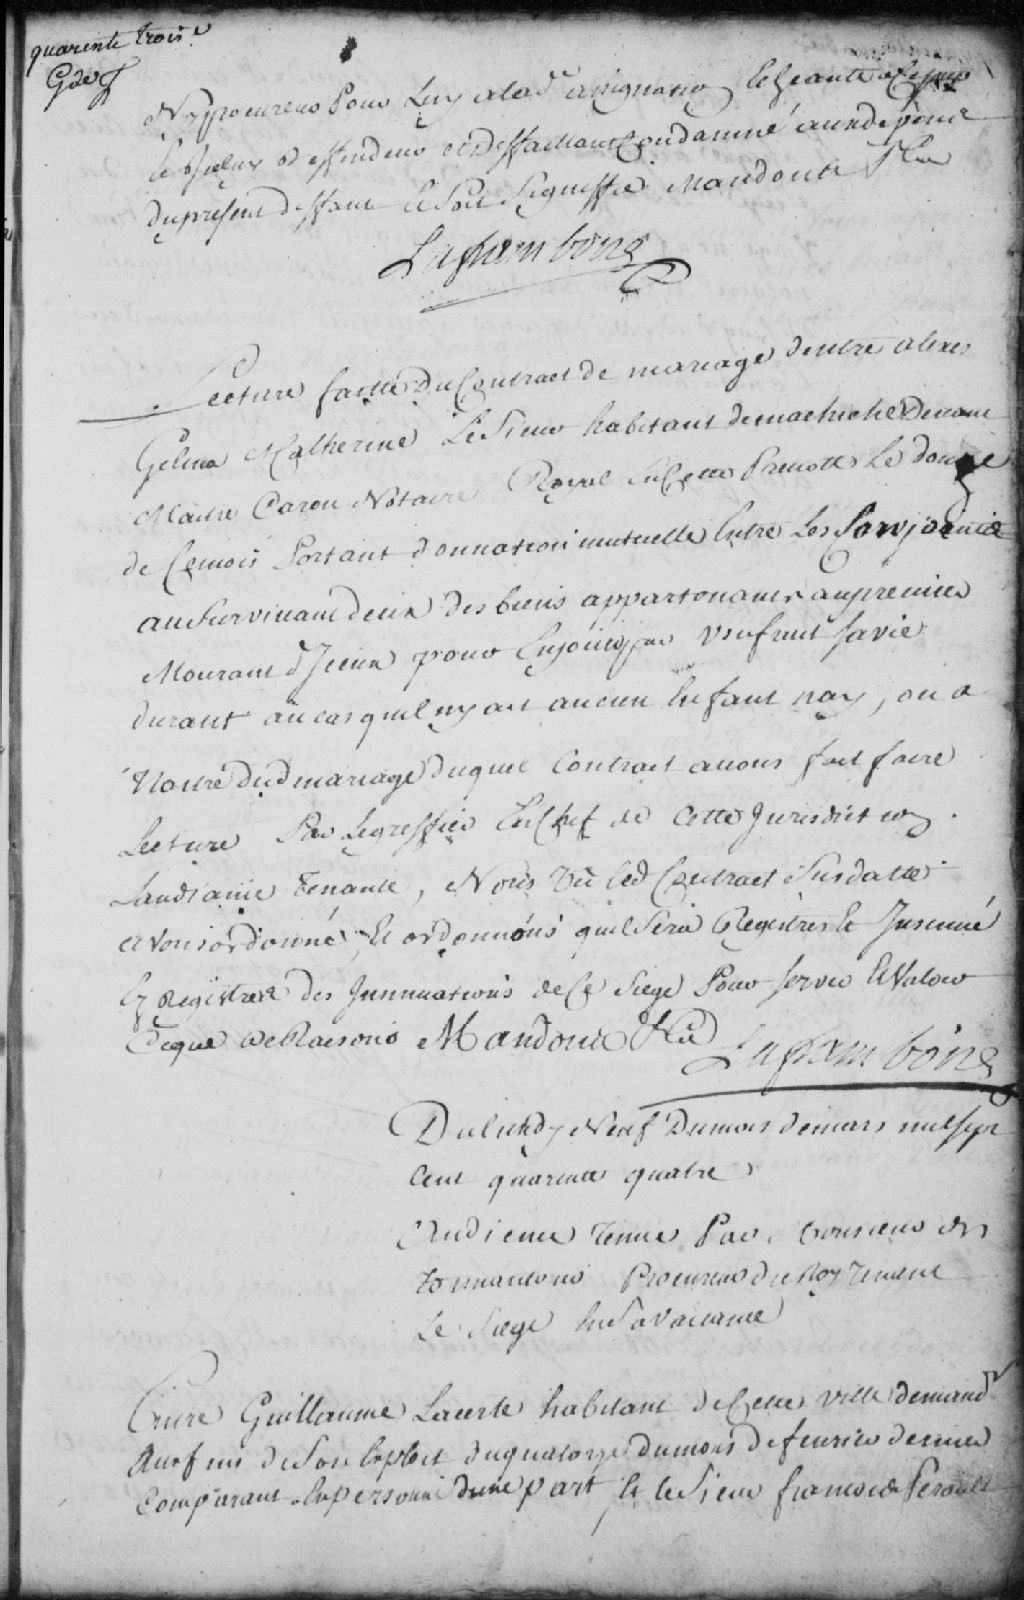 quarente Trois e
G de f
Ny procureur Pour Luy alad.e assignation Lecheante a ce jour
deffendeur et deffaillant Condamné aux depens
du present deffaut et Soit Signiffié Mandons &a
Lafsamboires
Lecture faitte du Contract de mariage d'entre alexis
Gelina Catherine LeSieur habitant demachiche Devant
Maitre Caron Notaire Royal En Cette Prevotté Le douze
de Cemois Portant donnation mutuelle Entre Les Conjoints
au Survivant deux des biens appartenans au premier
Mourant d'Iceux pour En jouir par Usufruit Savie
durant au cas quil ny ait aucun Enfant nay, ou a
Naitre dud mariage Duquel Contract avons fait faire
Lecture Par Legreffier En Chef de Cette Jurisdiction
Laudiance Tenante, Nous Vû led Contract Susdatté
avons ordonné, Et ordonnons quil Sera Registré Et Insinué
Es Registres des Insinuations de Ce Siege Pour Servir Et Valoir
Ceque de Raisons Mandons &a Lafsamboires
Du lundy Neuf Dumois demars mil sept
Cent quarente quatre
Audience Tenue Par Monsieur de
Tonnancour Procureur du Roy Tenant
Le Siege En Sa Vaccance
Entre Guillaume Laserte habitant de Cette ville demand.r
Aux fins de Son Exploit du quatorze dumois de fevrier dernier
Comparant En personne Dune part, Et le Sieur francois Perault